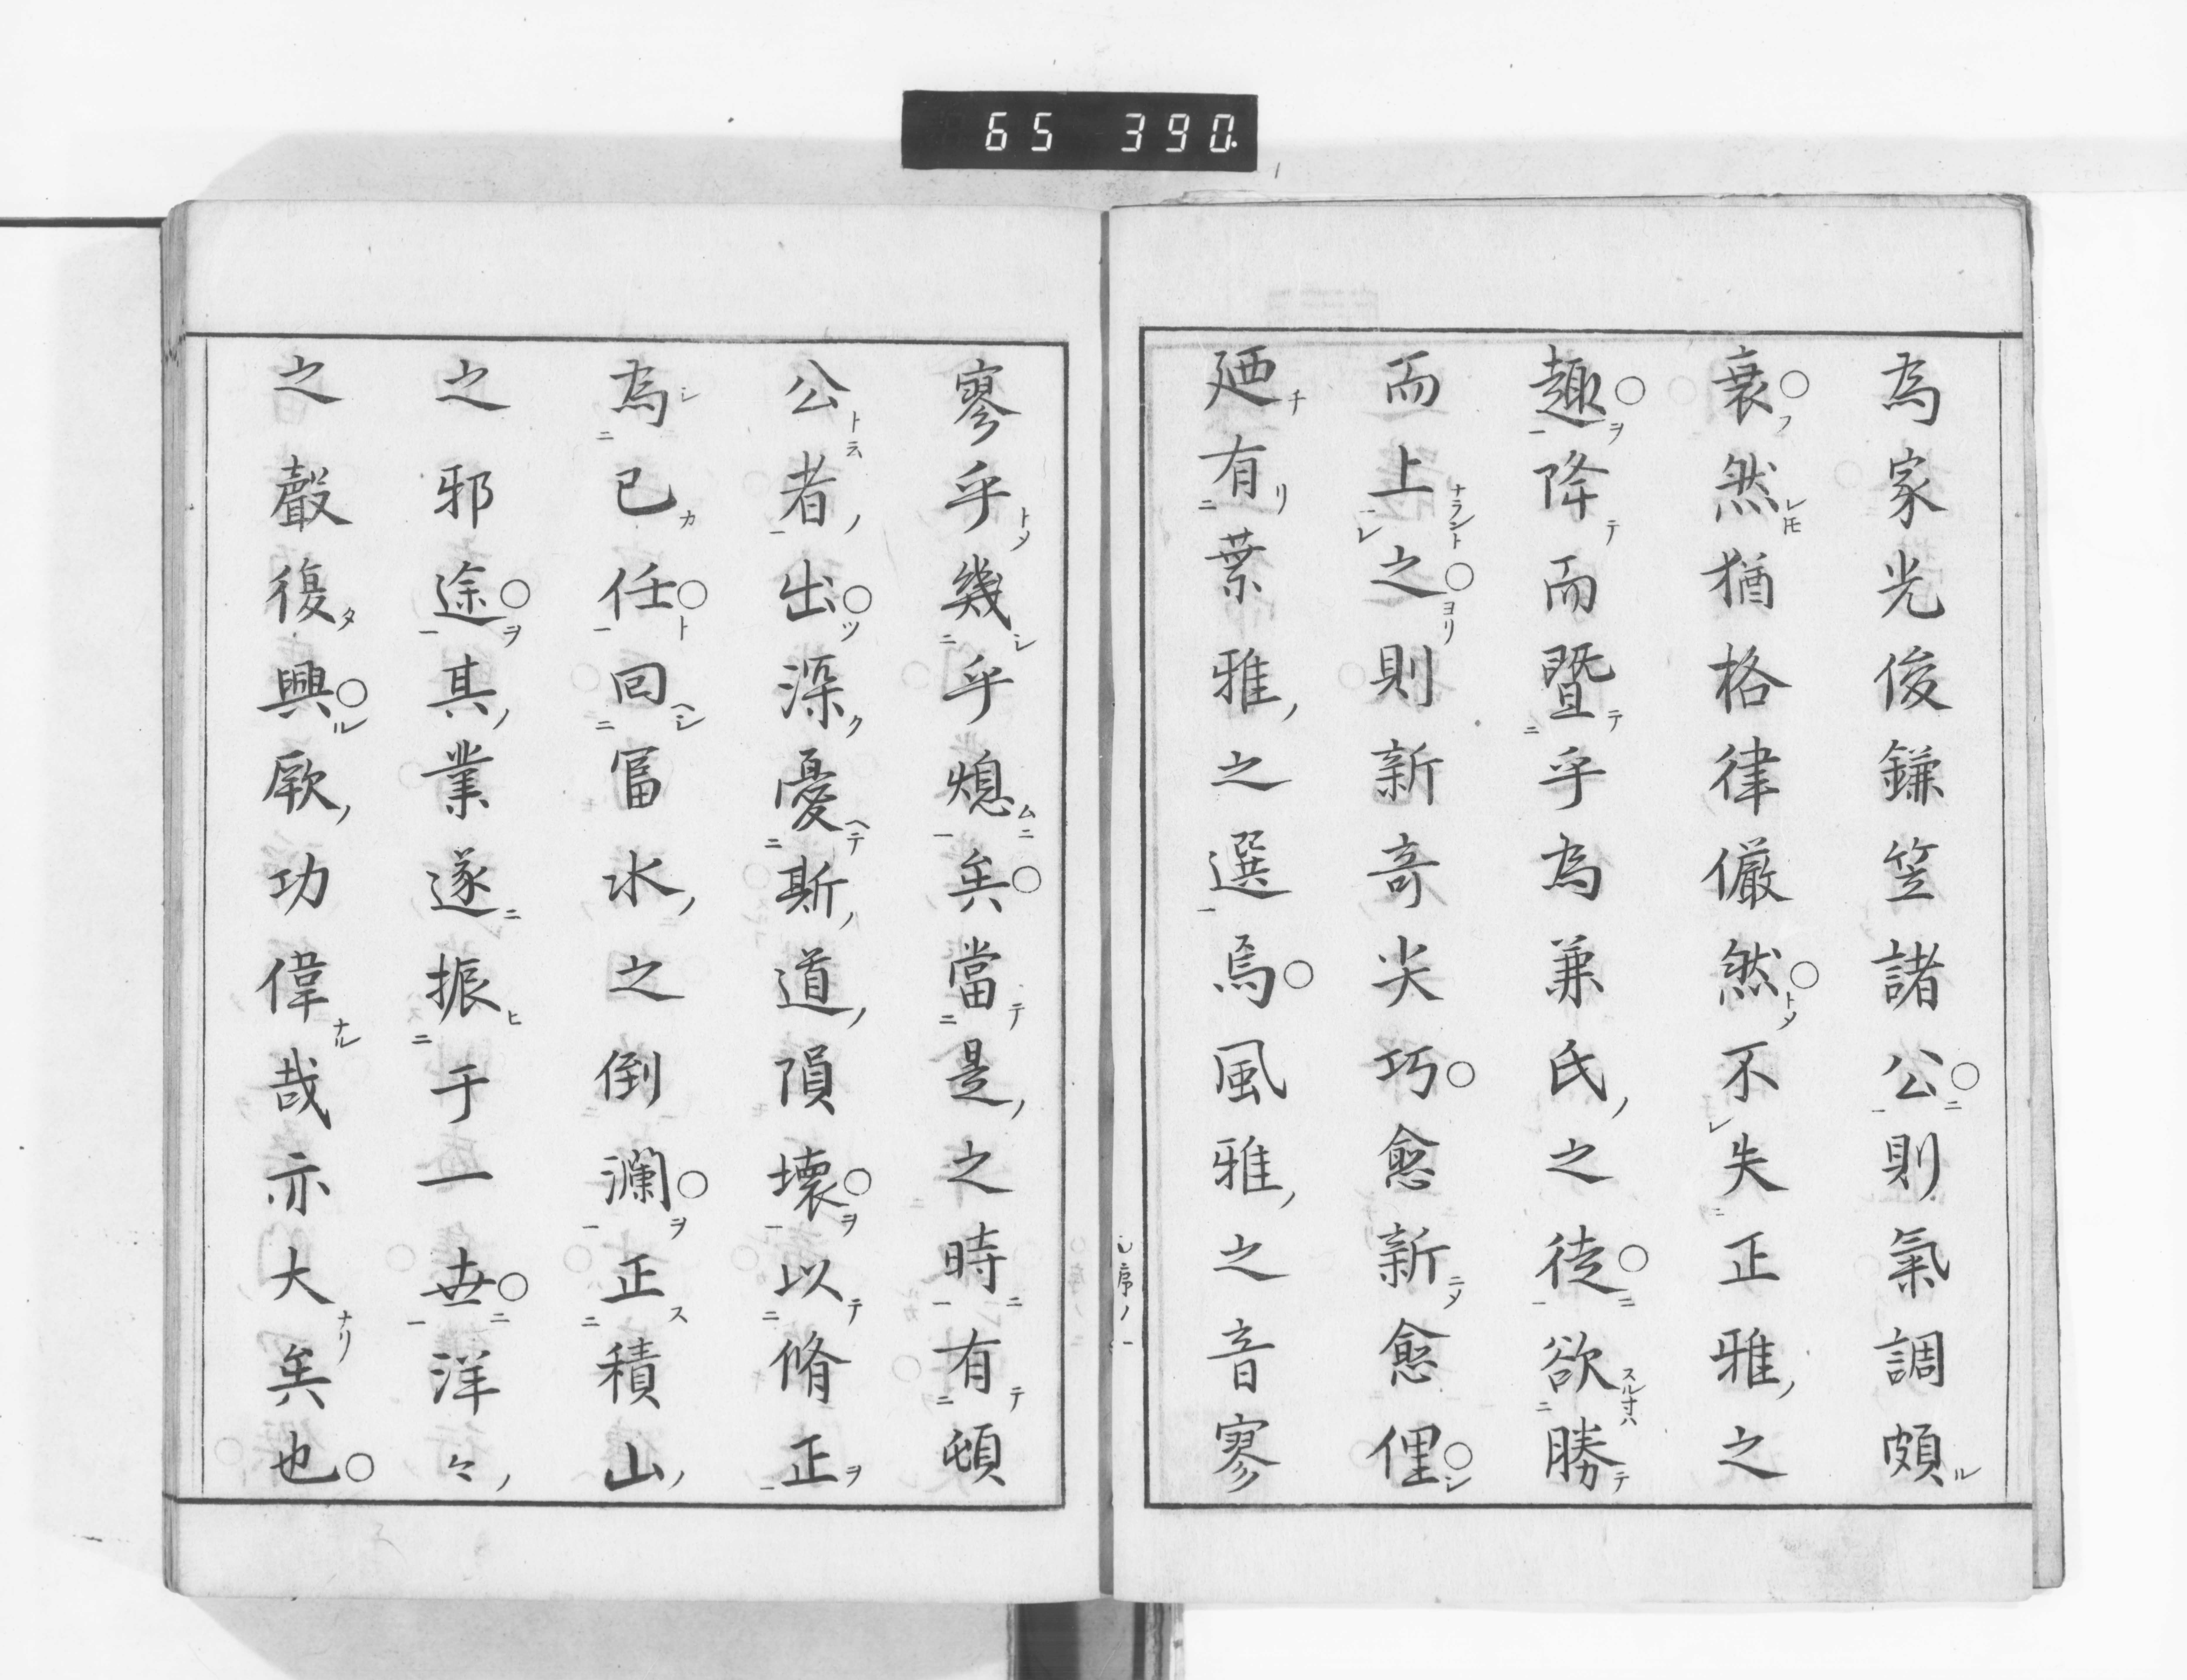 65 390
為家光俊鎌笠諸公則氣調頗
衰然猶格律儼然不失正雅之
趣降而曁乎為兼氏之徒欲勝
而上之則新奇尖巧愈新愈俚
廼有葉雅之選焉風雅之音寥
寥乎幾乎熄矣當是之時有頓
公者出深憂斯道隕壊以脩正
為己任回冨水之倒瀾正積山
之邪途其業遂振于一世洋々
之聲復興厥功偉哉亦大矣也